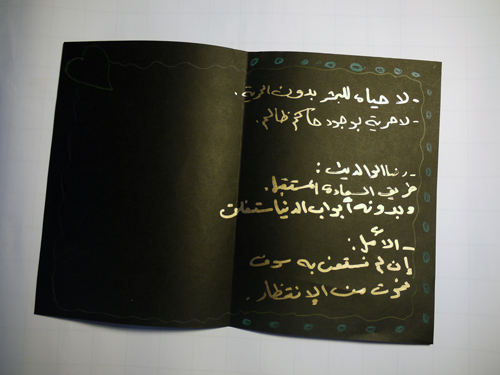 - لا حياة للبشر بدون الحرية.
- لا حرية بوجود حاكم ظالم.
- رضا الوالدين:
طريق السعادة المستقبل.
وبدونه أبواب الدنيا ستغلق
- الأمل:
إن لم نستعن به سوف
نموت من الإنتظار.